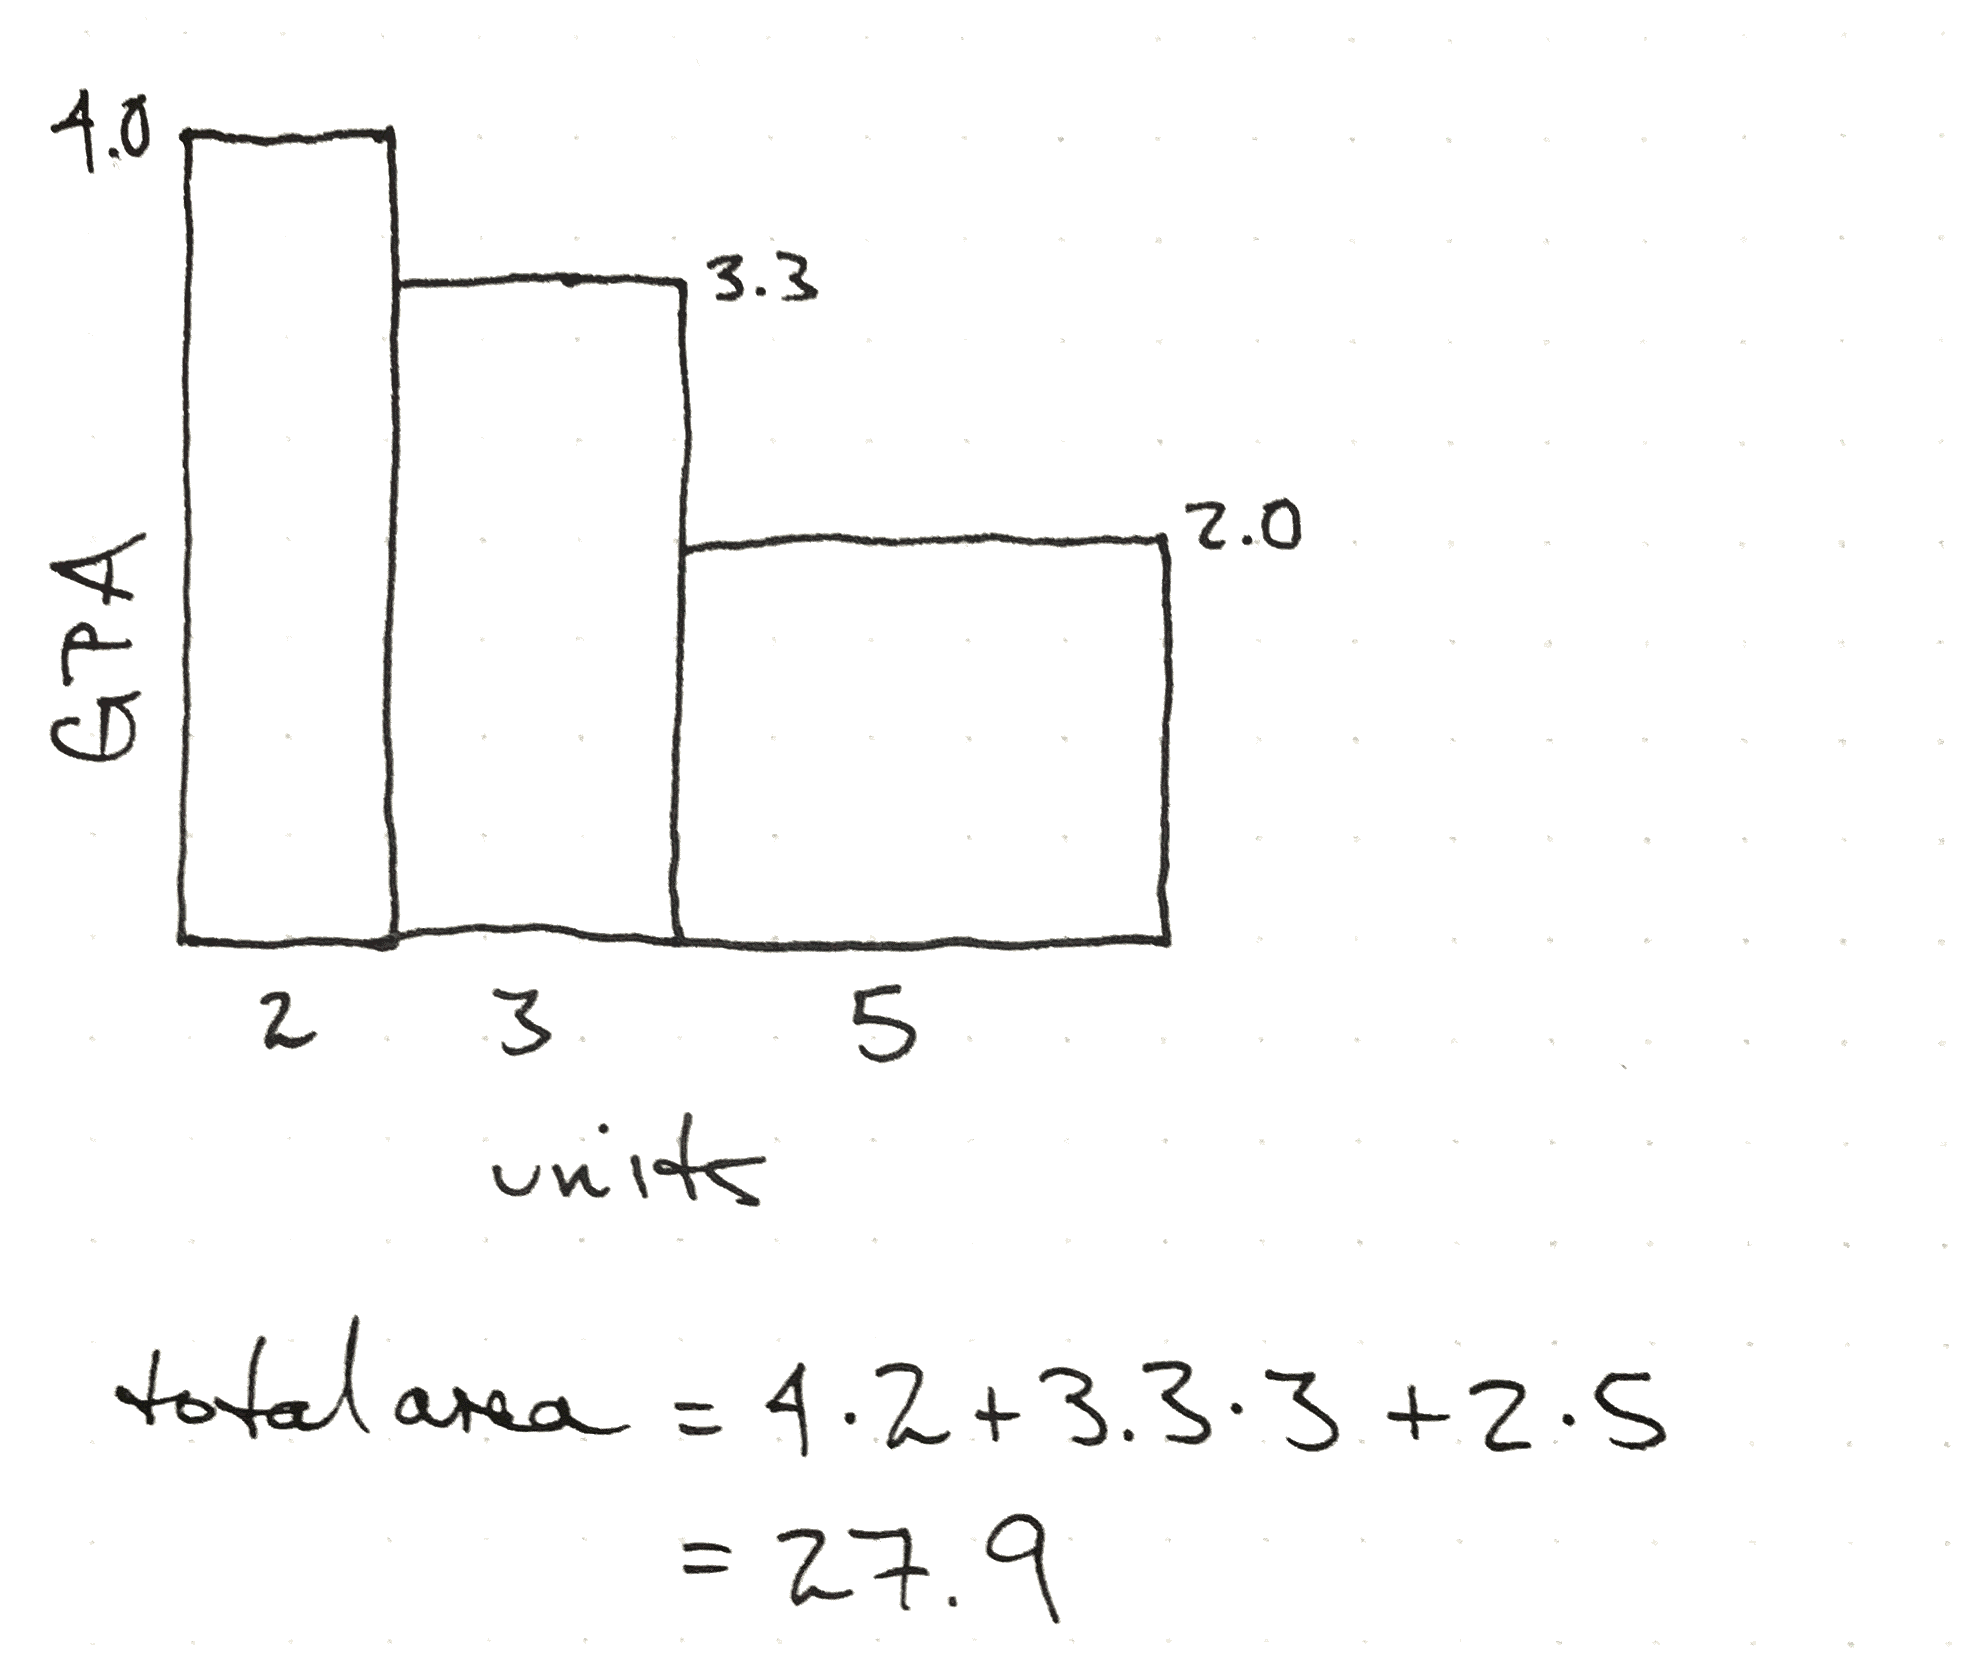 4.0
3.3
2.0
GPA
2 3 5
units
total area = 4·2+3.3·3+2·5
= 27.9